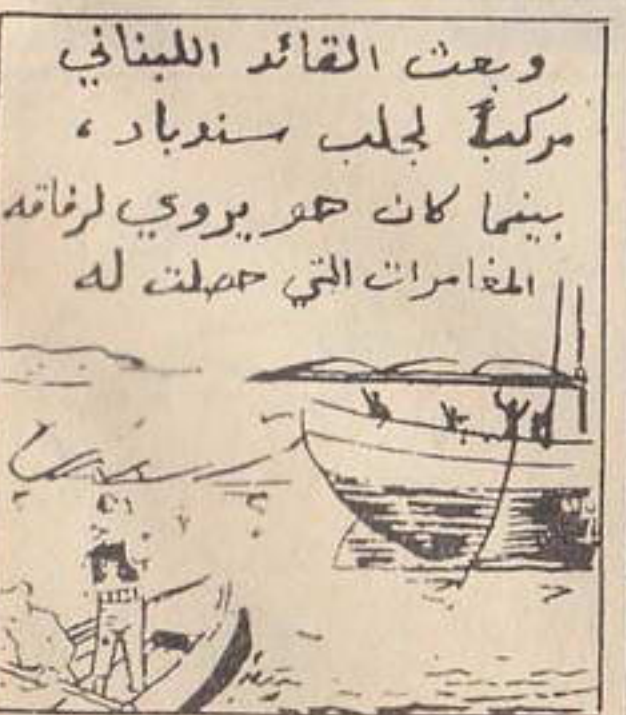 وبعث القائد اللبناني
مركباً لجلب سندباد ،
بينما كان هو يروي لرفاقه
المغامرات التي حصلت له